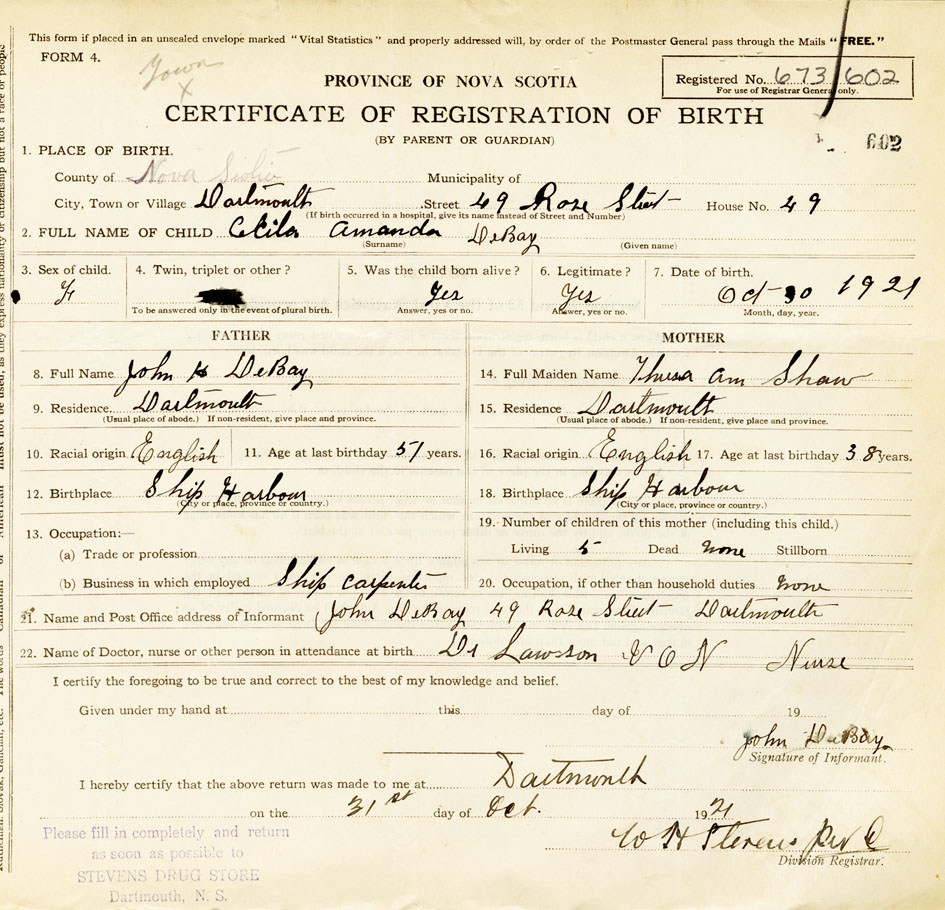 This form if placed in an unsealed envelope marked "Vital Statistics" and properly addressed will, by order of the Postmaster General pass through the Mails "FREE."
FORM 4.
Town
X
PROVINCE OF NOVA SCOTIA
Registered No. 673/602
For use of Registrar General only.
CERTIFICATE OF REGISTRATION OF BIRTH
(BY PARENT OR GUARDIAN)
602
1. PLACE OF BIRTH.
County of Nova Scotia Municipality of
City, Town or Village Dartmouth Street 49 Rose Street House No. 49
(If birth occurred in a hospital, give its name instead of Street and Number)
2. FULL NAME OF CHILD Cecila Amanda DeBay
(Surname) (Given name)
3. Sex of child. 4. Twin, triplet or other? 5. Was the child born alive? 6. Legitimate? 7. Date of birth.
F Yes Yes Oct 30 1921
To be answered only in the event of plural birth. Answer, yes or no. Answer, yes or no. Month, day, year.
FATHER MOTHER
8. Full Name John H DeBay 14. Full Maiden Name Thresa Ann Shaw
9. Residence Dartmouth 15. Residence Dartmouth
(Usual place of abode.) If non-resident, give place and province. (Usual place of abode.) If non-resident, give place and province.
10. Racial origin English 11. Age at last birthday 51 years. 16. Racial origin English 17. Age at last birthday 38 years.
12. Birthplace Ship Harbour 18. Birthplace Ship Harbour
(City or place, province or country.) (City or place, province or country.)
13. Occupation:— 19. Number of children of this mother (including this child.)
(a) Trade or profession Living 5 Dead None Stillborn
(b) Business in which employed Ship carpenter 20. Occupation, if other than household duties None
21. Name and Post Office address of Informant John DeBay 49 Rose Street Dartmouth
22. Name of Doctor, nurse or other person in attendance at birth Dr Lawsson V O N Nurse
I certify the foregoing to be true and correct to the best of my knowledge and belief.
Given under my hand at this day of 19
John DeBay
Signature of Informant.
I hereby certify that the above return was made to me at Dartmouth
on the 31st day of Oct. 1921
W H Stevens
Division Registrar.
Please fill in completely and return
as soon as possible to
STEVENS DRUG STORE
Dartmouth, N. S.